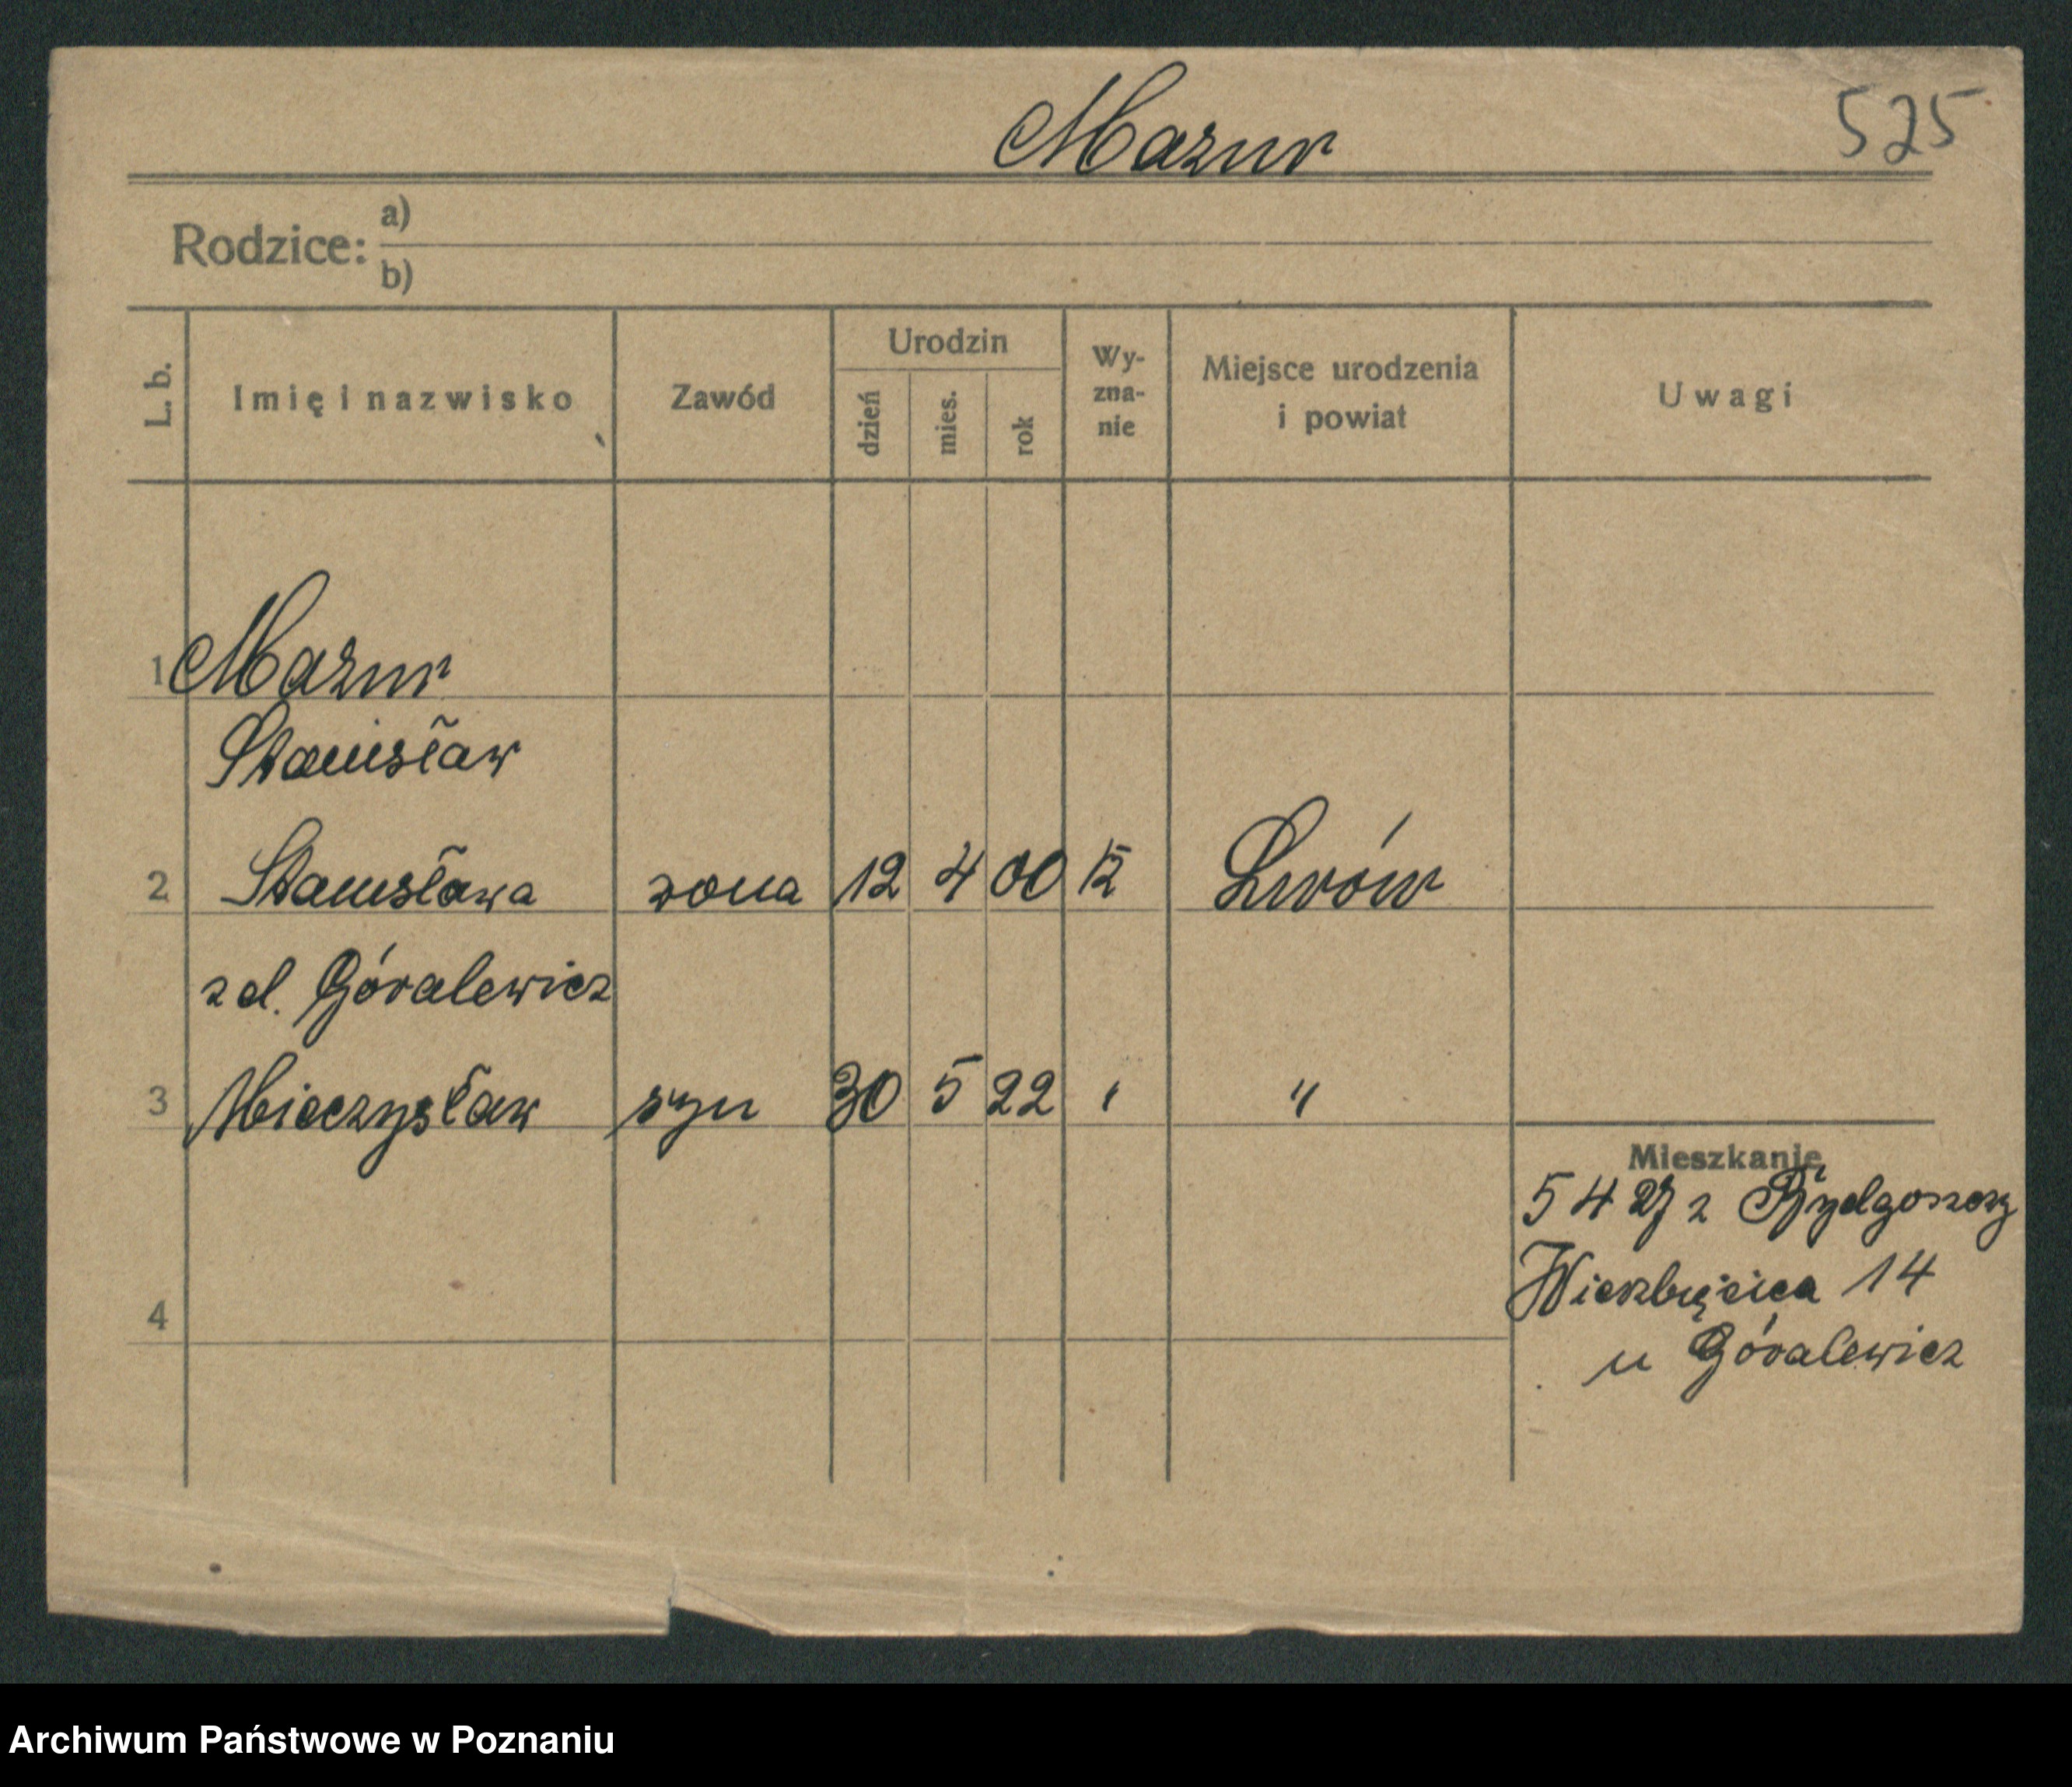 Mazur 525
Rodzice: a)
b)
L. b. Imię i nazwisko Zawód Urodzin dzień mies. rok Wy-zna-nie Miejsce urodzenia i powiat Uwagi
1 Mazur
Stanisław
2 Stanisława żona 12 4 00 Lwów
z d. Góralewicz
3 Mieczysław syn 30 5 22 " "
Mieszkanie
5 4 27 z Bydgoszczy
Wierzbięcice 14
u Góralewicz
4
Archiwum Państwowe w Poznaniu